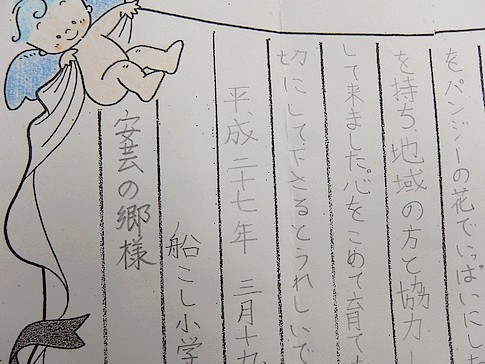 をパンジーの花でいっぱいにした
を持ち、地域の方と協力し
して来ました。心をこめて育てた
切にして下さるとうれしいで
平成二十七年 三月十九
船こし小学
安芸の郷様